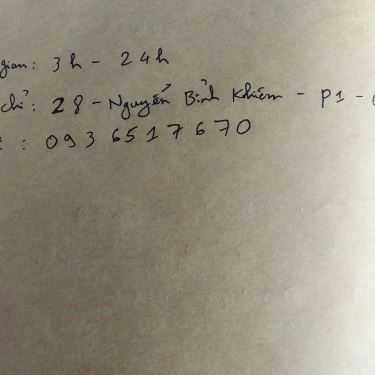 gian: 3h - 24h
chỉ: 28 - Nguyễn Bỉnh Khiêm - P1 -
: 0936517670